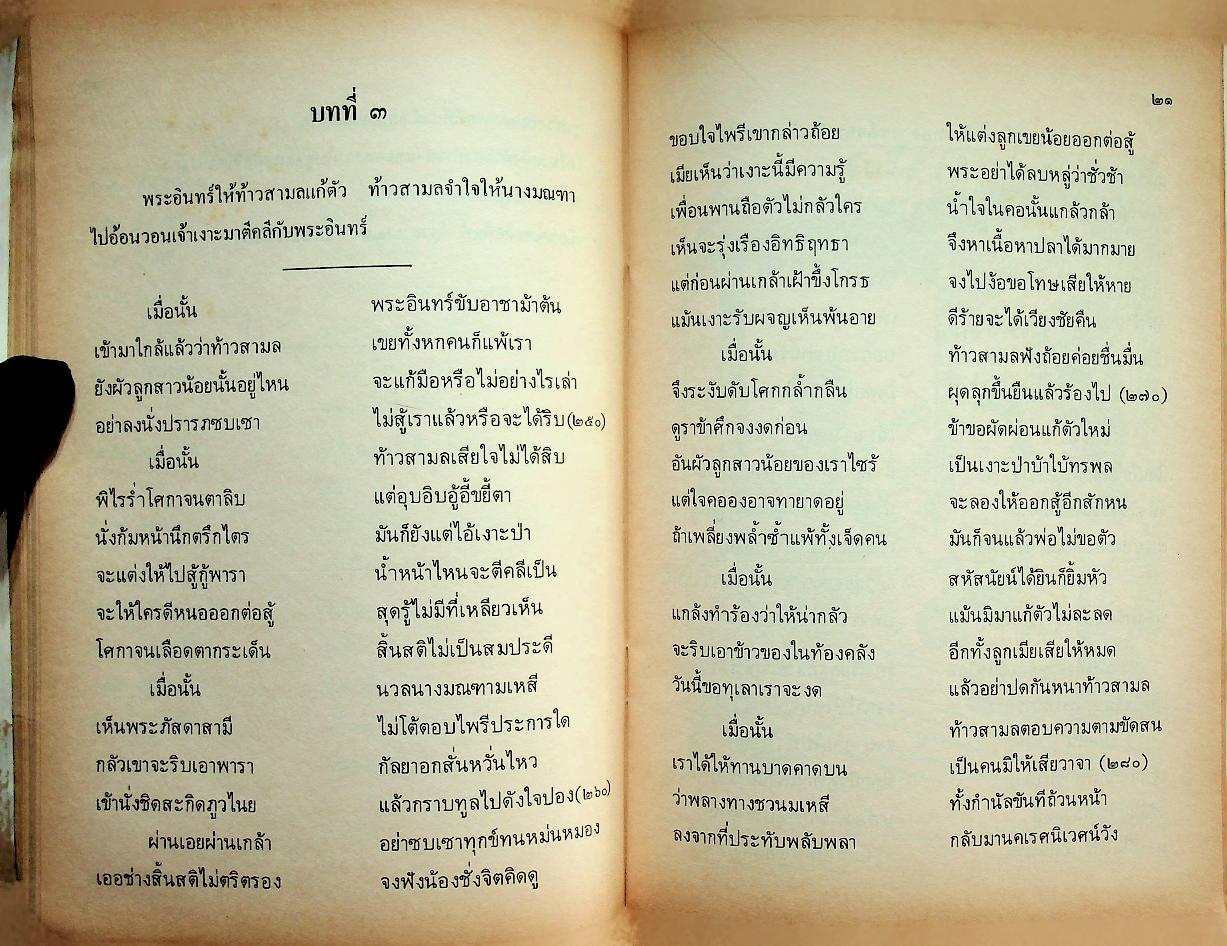 บทที่ ๓
พระอินทร์ให้ท้าวสามลแก้ตัว ท้าวสามลจำใจให้นางมณฑา
ไปอ้อนวอนเจ้าเงาะมาตีคลีกับพระอินทร์
เมื่อนั้น พระอินทร์ขับอาชาม้าต้น
เข้ามาใกล้แล้วว่าท้าวสามล เขยทั้งหกคนก็แพ้เรา
ยังผัวลูกสาวน้อยนั้นอยู่ไหน จะแก้มือหรือไม่อย่างไรเล่า
อย่าลงนั่งปรารภซบเซา ไม่สู้เราแล้วหรือจะได้ริบ(๒๕๐)
เมื่อนั้น ท้าวสามลเสียใจไม่ได้สิบ
พิไรร่ำโศกาจนตาลิบ แต่อุบอิบอู้อี้ขยี้ตา
นั่งก้มหน้านึกตรึกไตร มันก็ยังแต่ไอ้เงาะป่า
จะแต่งให้ไปสู้กู้พารา น้ำหน้าไหนจะตีคลีเป็น
จะให้ใครดีหนอออกต่อสู้ สุดรู้ไม่มีที่เหลียวเห็น
โศกาจนเลือดตากระเด็น สิ้นสติไม่เป็นสมประดี
เมื่อนั้น นวลนางมณฑามเหสี
เห็นพระภัสดาสามี ไม่โต้ตอบไพรีประการใด
กลัวเขาจะริบเอาพารา กัลยาอกสั่นหวั่นไหว
เข้านั่งชิดสะกิดภูวไนย แล้วกราบทูลไปดังใจปอง(๒๖๐)
ผ่านเอยผ่านเกล้า อย่าซบเซาทุกข์ทนหม่นหมอง
เออช่างสิ้นสติไม่ตริตรอง จงฟังน้องชั่งจิตคิดดู
๒๑
ขอบใจไพรีเขากล่าวถ้อย ให้แต่งลูกเขยน้อยออกต่อสู้
เมียเห็นว่าเงาะนี้มีความรู้ พระอย่าได้ลบหลู่ว่าชั่วช้า
เพื่อนพานถือตัวไม่กลัวใคร น้ำใจในคอนั้นแกล้วกล้า
เห็นจะรุ่งเรืองอิทธิฤทธา จึงหาเนื้อหาปลาได้มากมาย
แต่ก่อนผ่านเกล้าเฝ้าขึ้งโกรธ จงไปง้อขอโทษเสียให้หาย
แม้นเงาะรับผจญเห็นพ้นอาย ดีร้ายจะได้เวียงชัยคืน
เมื่อนั้น ท้าวสามลฟังถ้อยค่อยชื่นมื่น
จึงระงับดับโศกกล้ำกลืน ผุดลุกขึ้นยืนแล้วร้องไป (๒๗๐)
ดูราข้าศึกจงงดก่อน ข้าขอผัดผ่อนแก้ตัวใหม่
อันผัวลูกสาวน้อยของเราไซร้ เป็นเงาะป่าบ้าใบ้ทรพล
แต่ใจคอองอาจทายาดอยู่ จะลองให้ออกสู้อีกสักหน
ถ้าเพลี่ยงพล้ำซ้ำแพ้ทั้งเจ็ดคน มันก็จนแล้วพ่อไม่ขอตัว
เมื่อนั้น สหัสนัยน์ได้ยินก็ยิ้มหัว
แกล้งทำร้องว่าให้น่ากลัว แม้นมิมาแก้ตัวไม่ละลด
จะริบเอาข้าวของในท้องคลัง อีกทั้งลูกเมียเสียให้หมด
วันนี้ขอทุเลาเราจะงด แล้วอย่าปดกันหนาท้าวสามล
เมื่อนั้น ท้าวสามลตอบความตามขัดสน
เราได้ให้ทานบาดคาดบน เป็นคนมิให้เสียวาจา (๒๘๐)
ว่าพลางทางชวนมเหสี ทั้งกำนัลขันทีถ้วนหน้า
ลงจากที่ประทับพลับพลา กลับมานคเรศนิเวศน์วัง